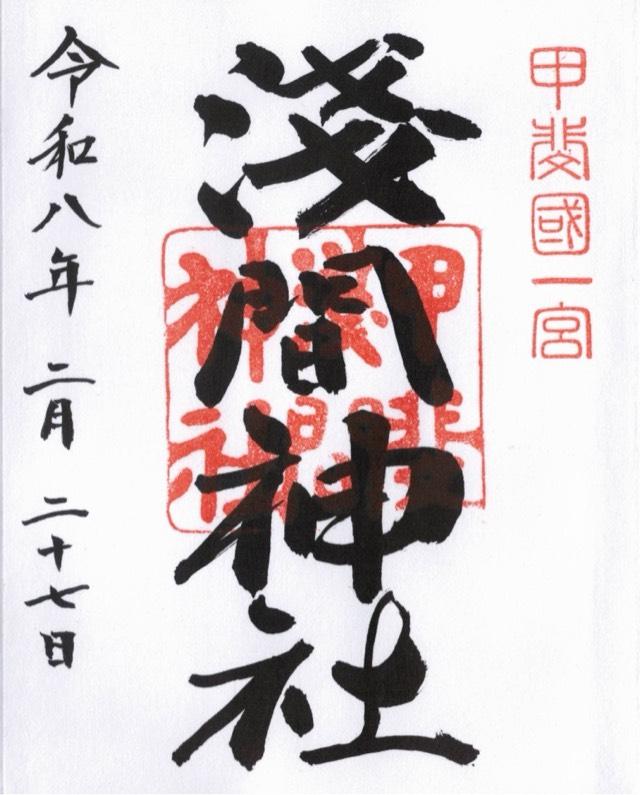 甲斐國一宮
淺間神社
甲斐
淺間
神社
令和八年 二月 二十七日